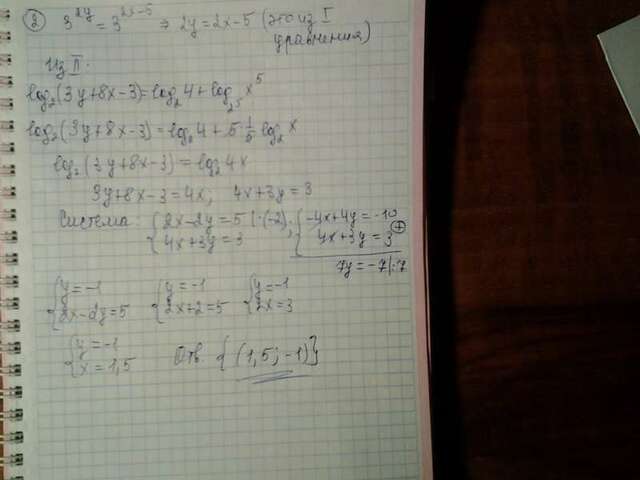 ② 3^2y = 3^2x-5 ⇒ 2y = 2x-5 (это из I уравнения)
Из II:
log₂(3y+8x-3) = log₂4 + log₂⁵ x⁵
log₂(3y+8x-3) = log₂4 + 5·1/5 log₂x
log₂(3y+8x-3) = log₂4x
3y+8x-3=4x, 4x+3y=3
Система: {2x-2y=5 |·(-2); {-4x+4y=-10
{4x+3y=3 {4x+3y=3 (+)
7y=-7|:7
{y=-1 {y=-1 {y=-1
{2x-2y=5 {2x+2=5 {2x=3
{y=-1
{x=1,5 Отв. {(1,5; -1)}